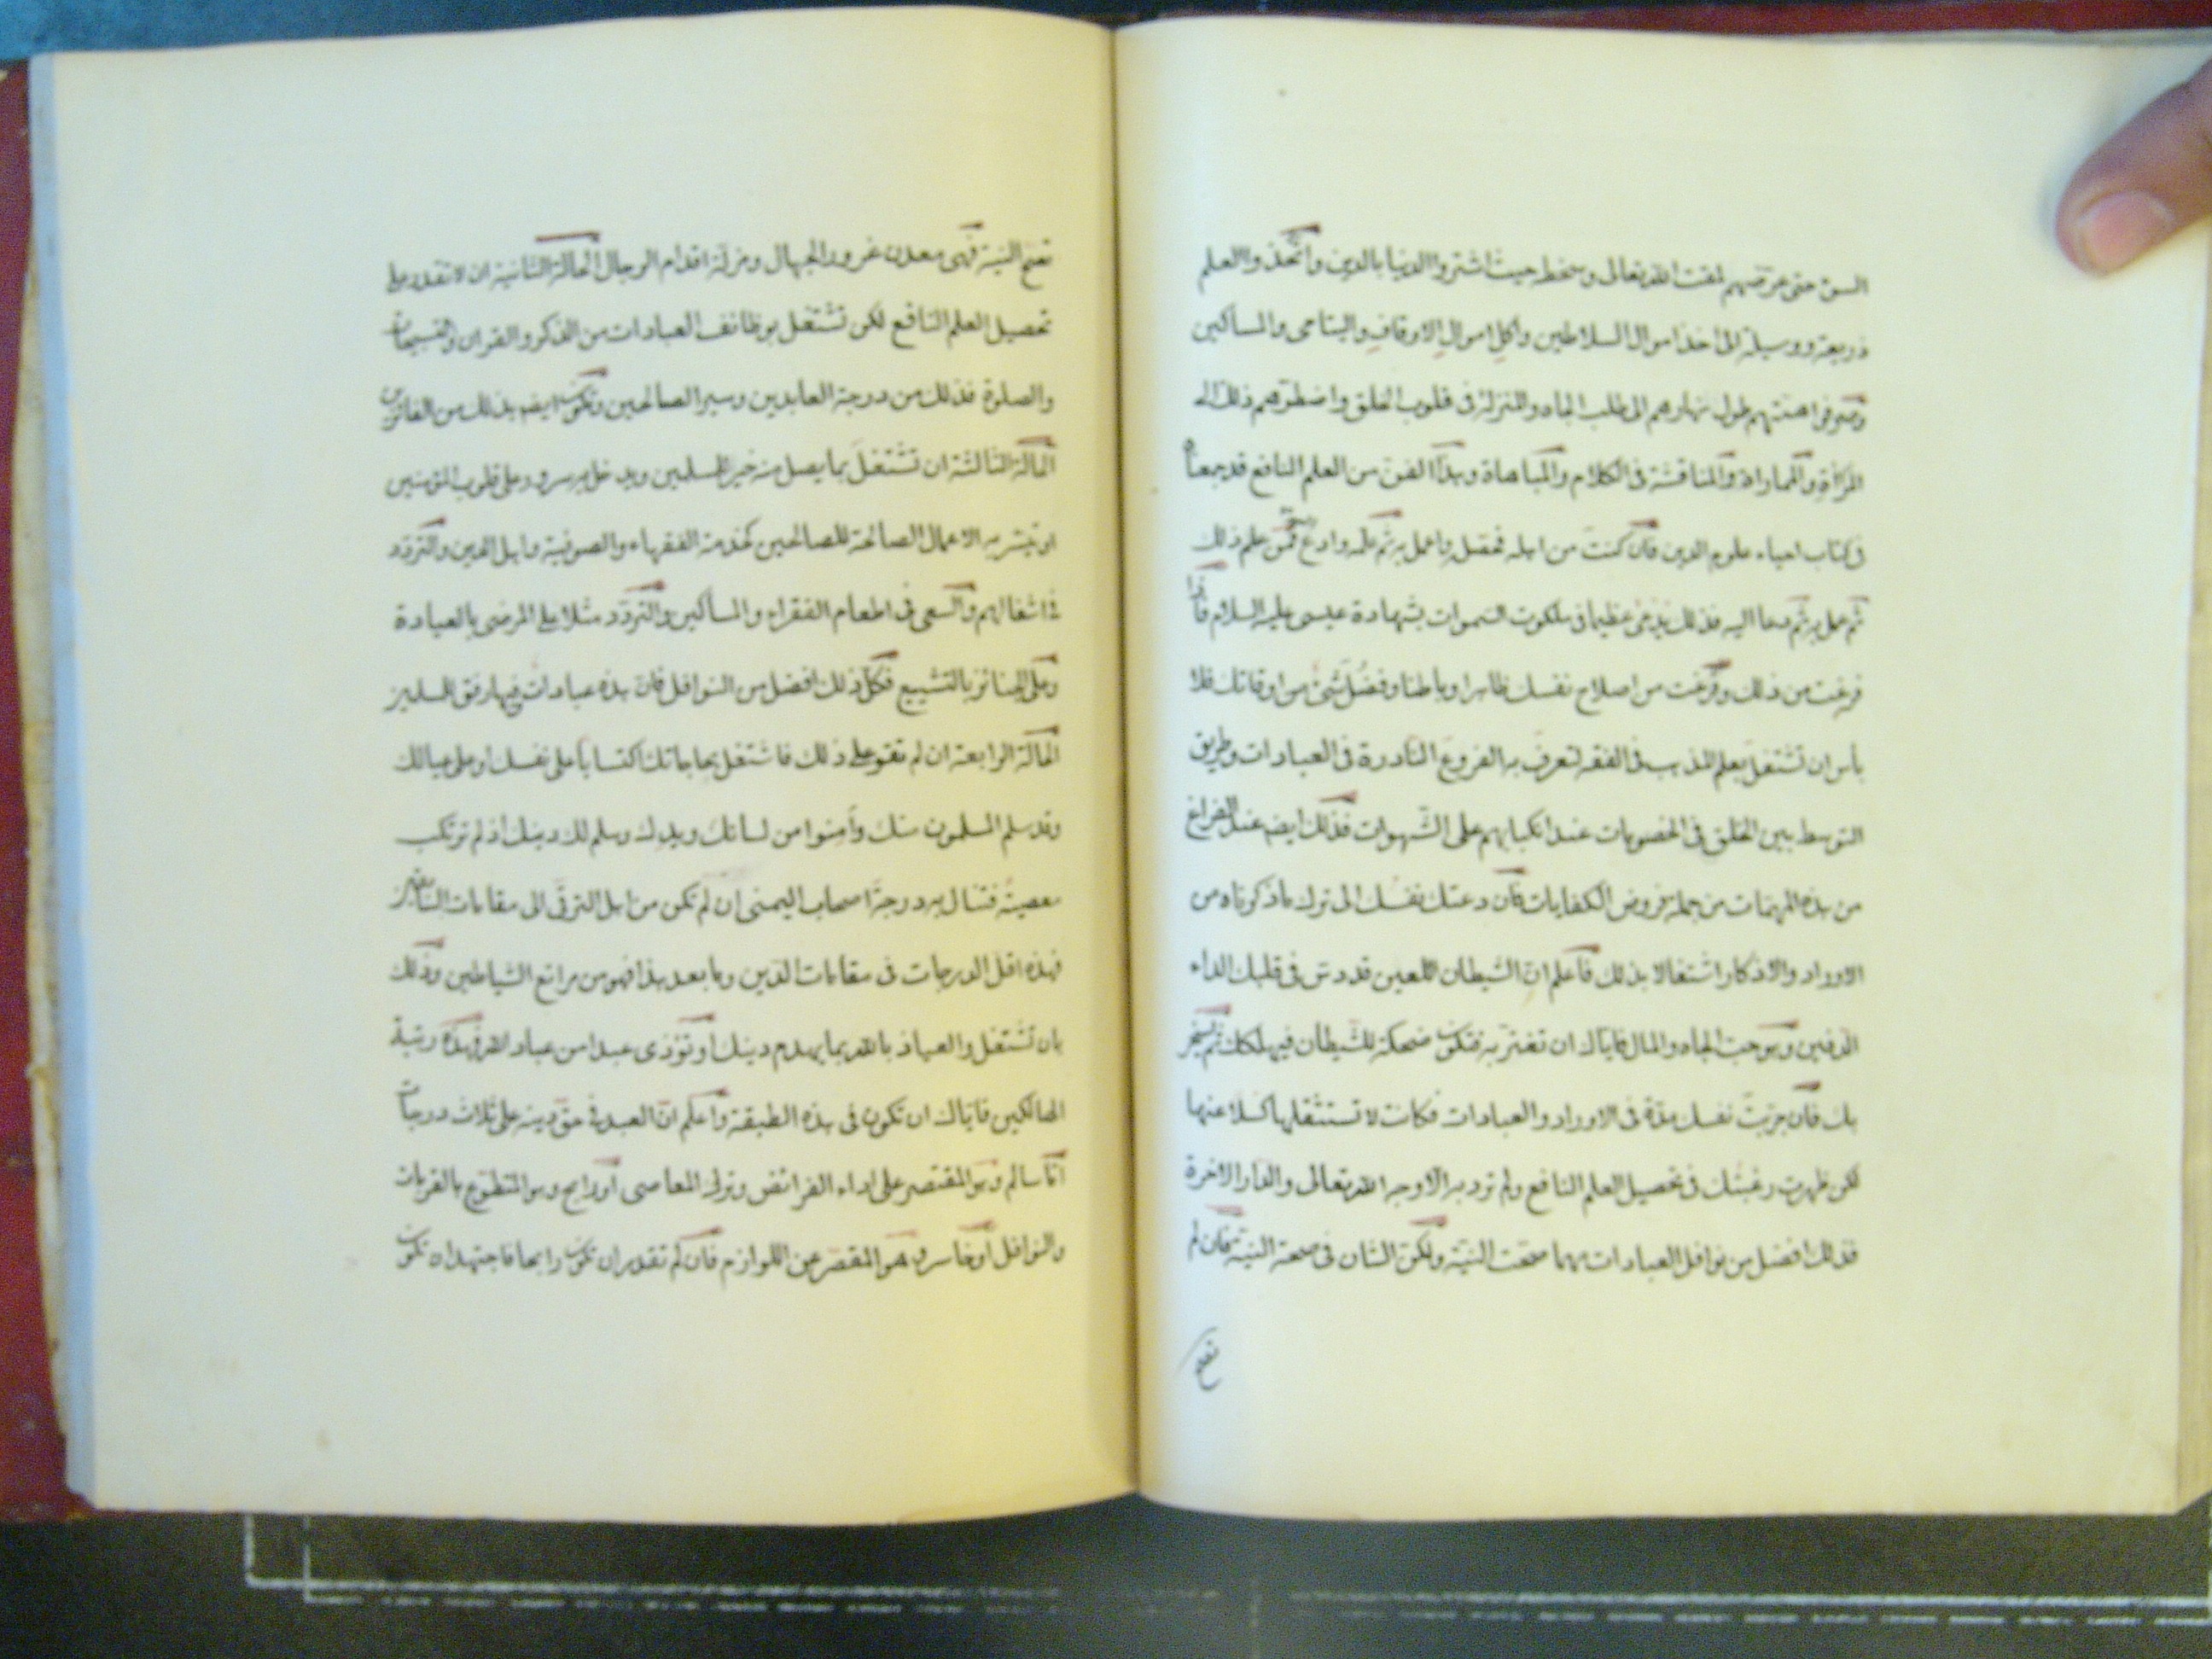 السوء حتى عرضهم لمقت الله تعالى وسخطه حيث اشتروا الدنيا بالدين واتخذوا العلم
ذريعة ووسيلة الى اخذ اموال السلاطين واكل اموال الاوقاف واليتامى والمساكين
وصرفوا همتهم طول نهارهم الى طلب الجاه والمنزلة فى قلوب الخلق واضطرهم ذلك الى
المرأة والمماراة والمناقشة فى الكلام والمباهاة وهذا الفن من العلم النافع قد جمعناه
فى كتاب احياء علوم الدين فان كنت من اهله فحصله واعمل به ثم علمه وادع فمن علم ذلك
ثم عمل به ثم دعا اليه فذلك يدعى عظيما فى ملكوت السموات بشهادة عيسى عليه السلام فاذا
فرغت من ذلك وفرغت من اصلاح نفسك ظاهرا وباطنا وفضل شئ من اوقاتك فلا
بأس ان تشتغل بعلم المذهب فى الفقه لتعرف به الفروع النادرة فى العبادات وطريق
التوسط بين الخلق فى الخصومات عند انكبابهم على الشهوات فذلك ايضا عند الفراغ
من هذه المهمات من جملة فروض الكفايات فان دعتك نفسك الى ترك ماذكرناه من
الاوراد والاذكار اشتغالا بذلك فاعلم ان الشيطان اللعين قد دس فى قلبك الداء
الدفين وهو حب الجاه والمال فاياك ان تغتر به فتكون ضحكة للشيطان فيهلكك ثم يسخر
بك فان جربت نفسك مدة فى الاوراد والعبادات فكانت لا تستثقلها كسلا عنها
لكن ظهرت رغبتك فى تحصيل العلم النافع ولم ترد به الا وجه الله تعالى والدار الاخرة
فذلك افضل من نوافل العبادات مهما صحت النية ولكن الشان فى صحة النية فان لم
تصح
تصح النية فهى معدن غرور الجهال ومزلة اقدام الرجال الحالة الثانية ان لا تقدر على
تحصيل العلم النافع لكن تشتغل بوظائف العبادات من الذكر والقران والتسبيحات
والصلوة فذلك من درجة العابدين وسير الصالحين وتكون ايضا بذلك من الفائزين
الحالة الثالثة ان تشتغل بما يصل منه خير للمسلمين ويدخل به سرور على قلوب المؤمنين
او تيسر به الاعمال الصالحة للصالحين كخدمة الفقهاء والصوفية واهل الدين والتردد
فى اشغالهم والسعى فى اطعام الفقراء والمساكين والتردد مثلا على المرضى بالعيادة
وعلى الجنائز بالتشييع فكل ذلك افضل من النوافل فان هذه عبادات فيها رفق للمسلمين
الحالة الرابعة ان لم تقو على ذلك فاشتغل بحاجاتك اكتسابا على نفسك او على عيالك
وقد سلم المسلمون منك وآمنوا من لسانك ويدك وسلم لك دينك اذ لم ترتكب
معصية فتنال به درجة اصحاب اليمنى ان لم تكن من اهل الترقى الى مقامات السابقين
فهذه اقل الدرجات فى مقامات الدين وما بعد هذا فهو من مراتع الشياطين وذلك
بان تشتغل والعياذ بالله بما يهدم دينك او تؤذى عبدا من عباد الله فهذه رتبة
الهالكين فاياك ان تكون فى هذه الطبقة واعلم ان العبد فى حق دينه على ثلاث درجات
اما سالم وهو المقتصر على اداء الفرائض وترك المعاصى او رابح وهو المتطوع بالقربات
والنوافل او خاسر وهو المقصر عن اللوازم فان لم تقدر ان تكون رابحا فاجتهد ان تكون